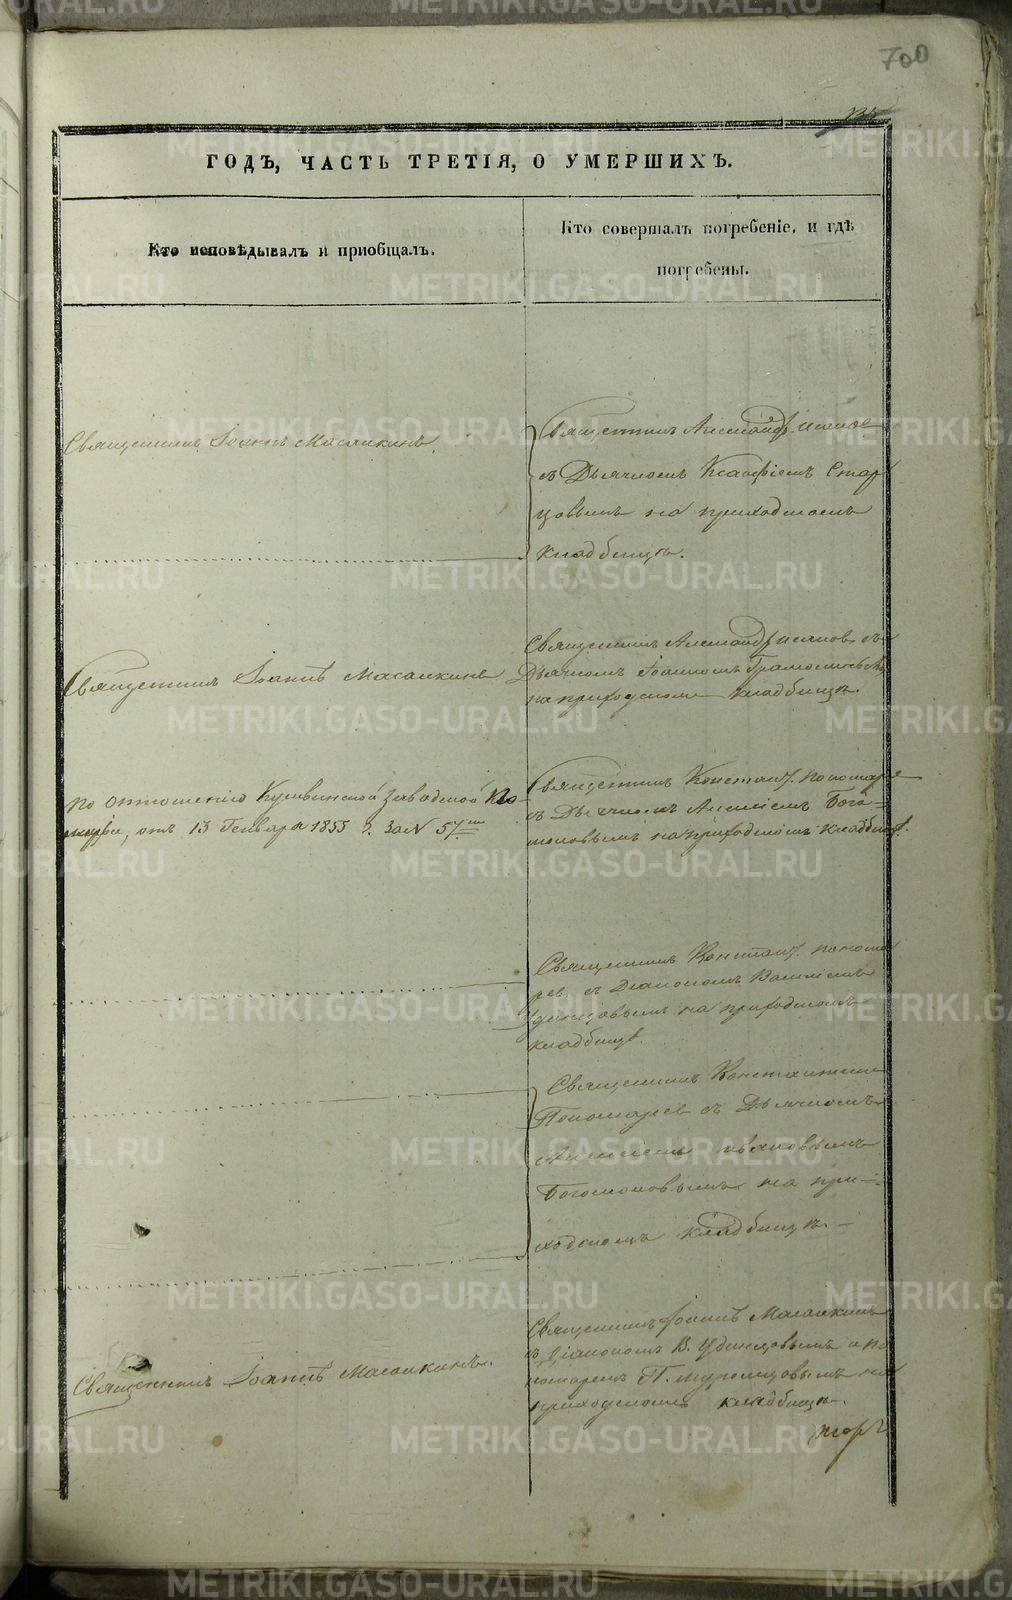 700
ГОДЪ, ЧАСТЬ ТРЕТІЯ, О УМЕРШИХЪ.
Кто исповѣдывалъ и пріобщалъ.
Кто совершалъ погребеніе, и гдѣ
погребены.
Священникъ Іоаннъ Масалкинъ.
Священникъ
съ Дьячкомъ Стар
цовымъ на приходскомъ
кладбищѣ.
Священникъ Іоаннъ Масалкинъ
Священникъ съ
Дьячкомъ Іоанномъ
на приходскомъ кладбищѣ.
По отношенію Кушвинской заводской Кон
торы, отъ 13 Генваря 1855 г. за № 57
Священникъ Констант. Пономаре
съ Дьячкомъ Алексіемъ Бого
моловымъ на приходскомъ кладбищѣ.
Священникъ Констант. Понома
рев съ Діакономъ
Удинцовымъ на приходскомъ
кладбищѣ.
Священникъ Константин
Пономарев съ Дьячкомъ
Алексіемъ Ивановымъ
Богомоловымъ на при-
ходскомъ кладбищѣ.
Священникъ Іоаннъ Масалкинъ.
Священникъ Іоаннъ Масалкинъ
съ Діакономъ В. Удинцовымъ и по
номаремъ П. Муромцовымъ на
приходскомъ кладбищѣ.
METRIKI.GASO-URAL.RU